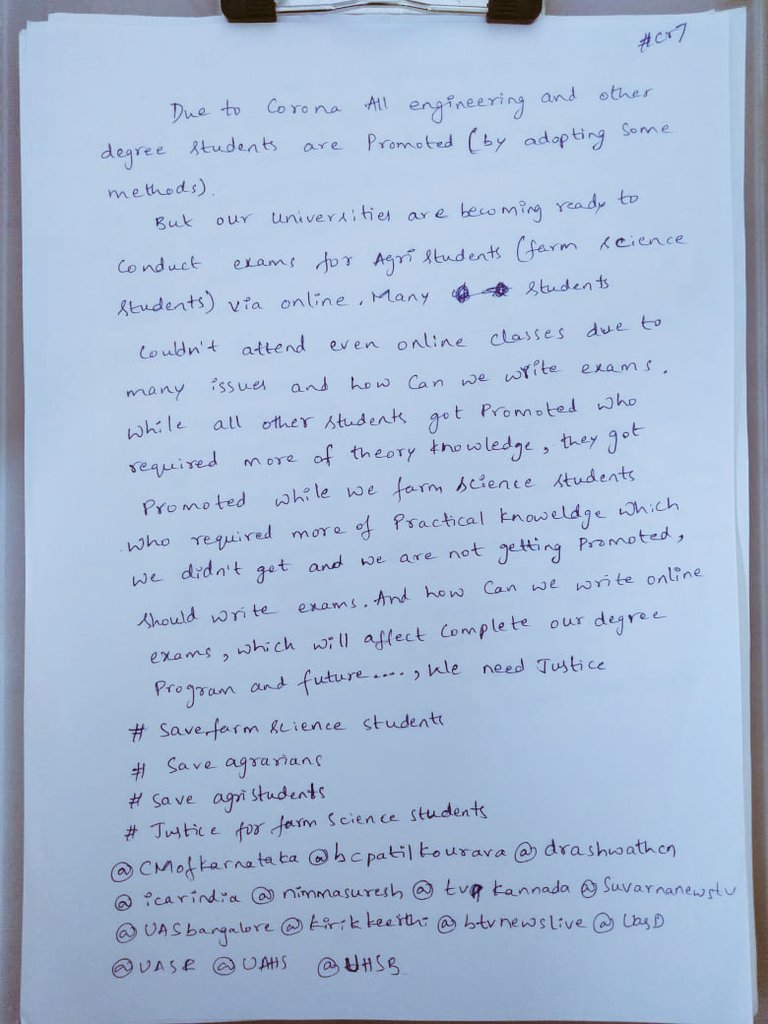 #cr7
Due to Corona All engineering and other
degree students are Promoted (by adopting Some
methods).
But our universities are becoming ready to
Conduct exams for Agri students (farm science
students) via online. Many students
Couldn't attend even online classes due to
many issues and how Can we write exams.
While all other students got Promoted who
required more of theory knowledge, they got
Promoted while we farm science students
who required more of Practical knoweldge which
we didn't get and we are not getting Promoted,
should write exams. And how Can we write online
exams, which will affect Complete our degree
Program and future...., We need Justice
# Save farm science students
# Save agrarians
# Save agristudents
# Justice for farm Science students
@CMofkarnataka @bcpatilkourava @drashwathcn
@icarindia @nimmasuresh @tv9 kannada @Suvarnanewstv
@UASbangalore @kirikkeerthi @btvnewslive @UasD
@UASR @UAHS @UHSB